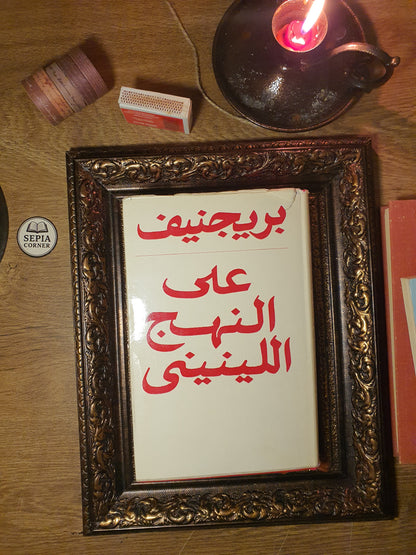 بريجنيف
على
النهج
اللينينى
SEPIA
CORNER